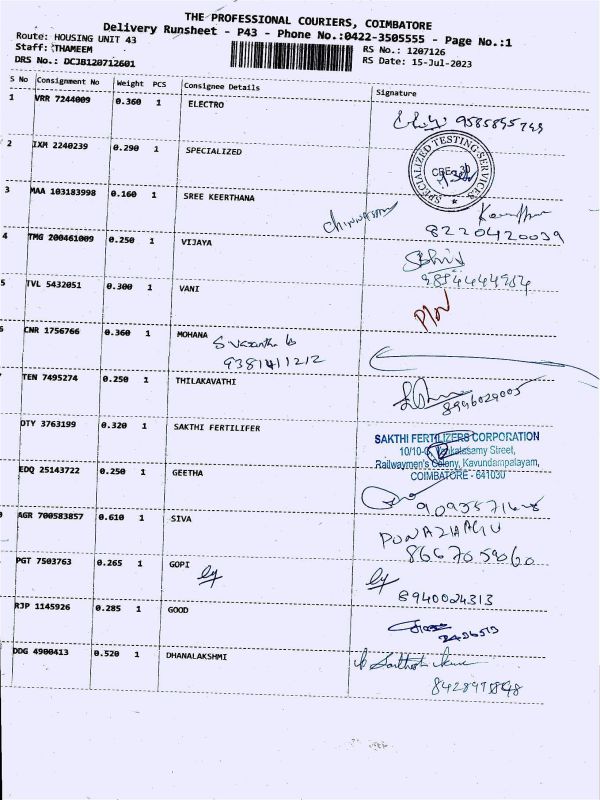 THE PROFESSIONAL COURIERS, COIMBATORE
Delivery Runsheet - P43 - Phone No.:0422-3505555 - Page No.:1
Route: HOUSING UNIT 43
RS No.: 1207126
Staff: THAMEEM
RS Date: 15-Jul-2023
DRS No.: DCJB120712601
S No Consignment No Weight PCS Consignee Details Signature
1 VRR 7244009 0.360 1 ELECTRO
2 IXM 2240239 0.290 1 SPECIALIZED
SPECIALIZED TESTING SERVICES
3 MAA 103183998 0.160 1 SREE KEERTHANA
8220420039
4 TMG 200461009 0.250 1 VIJAYA
5 TVL 5432051 0.300 1 VANI
CNR 1756766 0.360 1 MOHANA
9381411212
TEN 7495274 0.250 1 THILAKAVATHI
8996029005
OTY 3763199 0.320 1 SAKTHI FERTILIFER
SAKTHI FERTILIZERS CORPORATION
Street,
Railwaymen's Colony, Kavundampalayam,
COIMBATORE - 641030
EDQ 25143722 0.250 1 GEETHA
AGR 700583857 0.610 1 SIVA
PGT 7503763 0.265 1 GOPI
8940024313
RJP 1145926 0.285 1 GOOD
DDG 4900413 0.520 1 DHANALAKSHMI